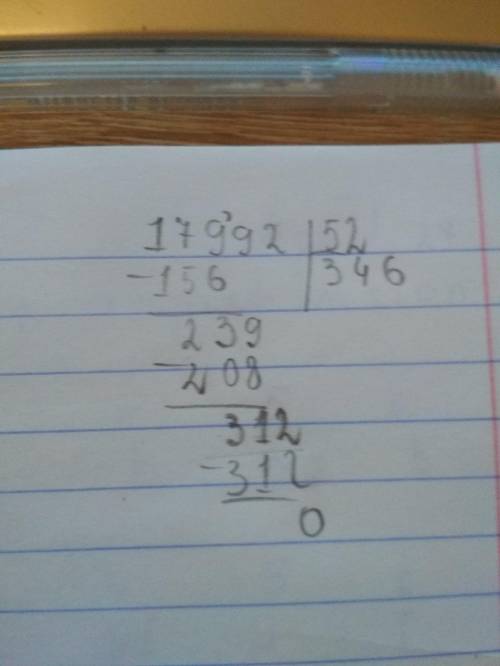 17992 52
-156 346
239
-208
312
-312
0